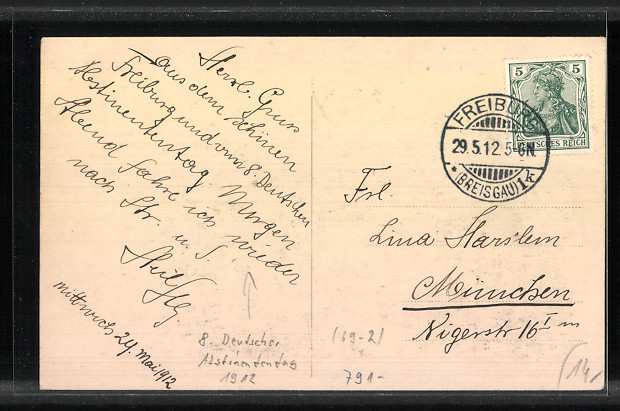 Herzl. Gruss
aus dem schönen
Freiburg und vom 8. Deutschen
Abstinententag. Morgen
Abend fahre ich wieder
nach Str. u. S.
mittwoch 29. Mai 1912
8. Deutscher
Abstinententag
1912
5 5
DEUTSCHES REICH
FREIBURG
29.5.12.5-6N.
* (BREISGAU) 1k
Frl.
Lina
München
(69-2)
791-
(14,-